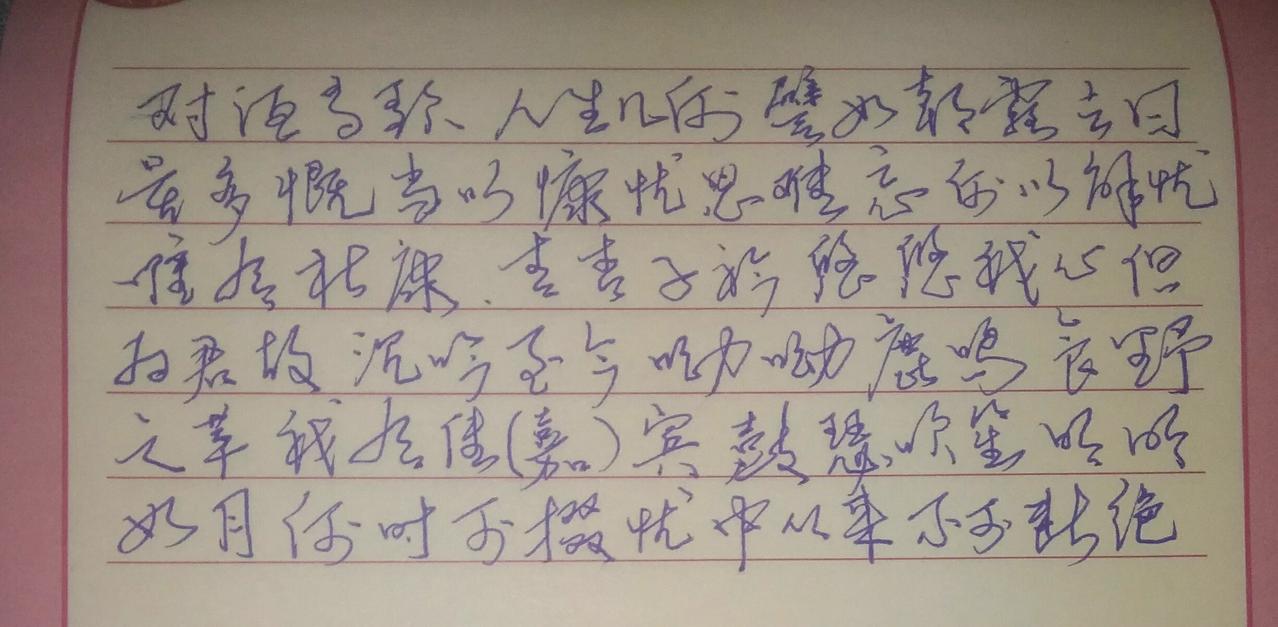 对酒当歌、人生几何譬如朝露去日
是多慨当以慷忧思难忘何以解忧
唯有杜康.青青子衿悠悠我心但
为君故沉吟至今呦呦鹿鸣食野
之苹我有佳(嘉)宾鼓瑟吹笙明明
如月何时可掇忧中从来不可断绝